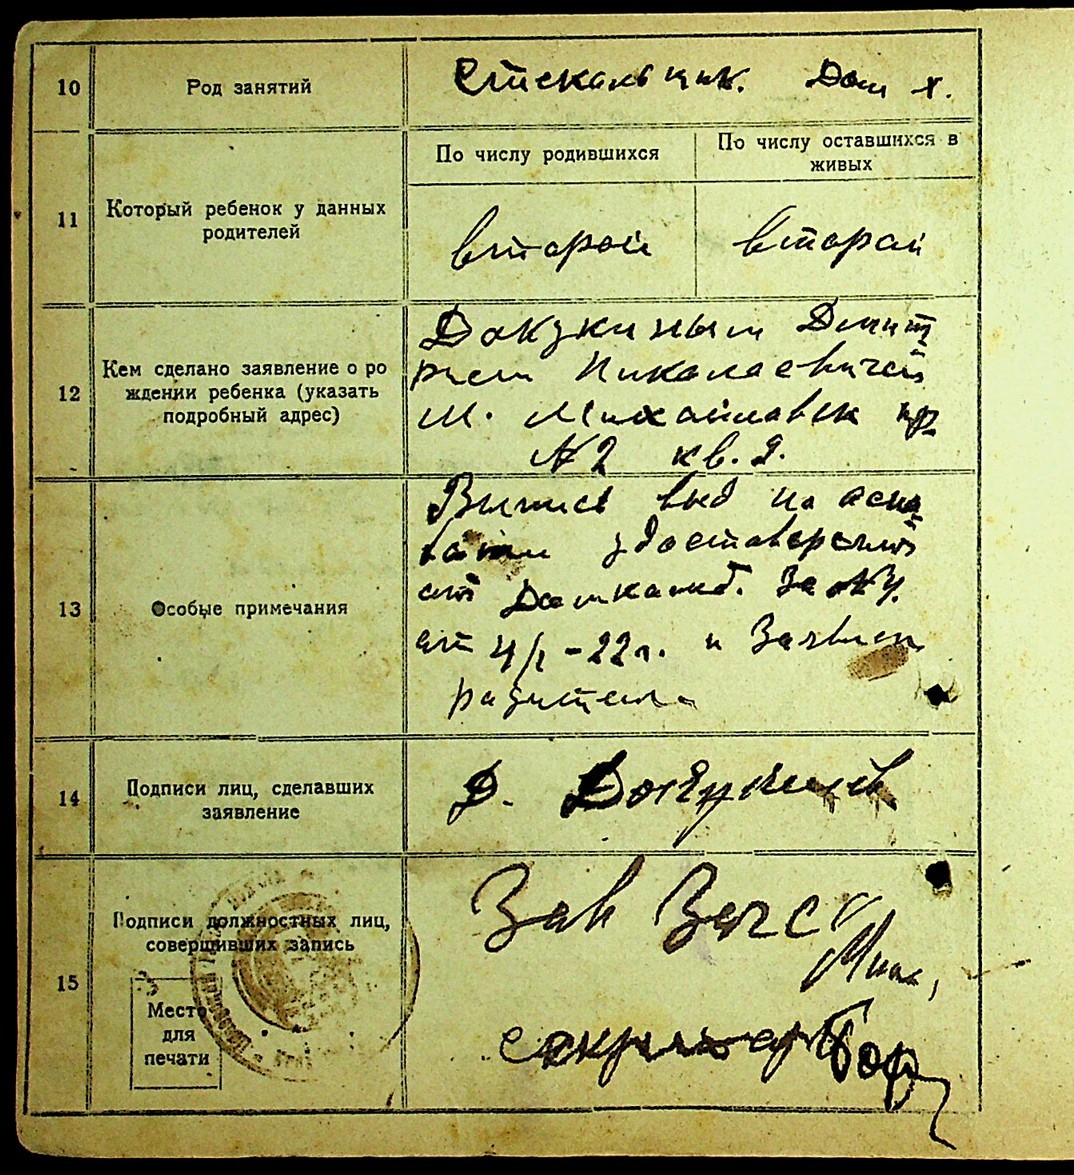 10 Род занятий Дом х.
По числу родившихся
По числу оставшихся в
живых
11 Который ребенок у данных
родителей
второй второй
12 Кем сделано заявление о ро
ждении ребенка (указать
подробный адрес)
Докукиным Дмит
рием Николаевичем
М. Михайловск пр.
№2 кв. 9.
13 Особые примечания
Выпись выд на осно
удостоверения
от За №
от 4/I-22г. и Заявлен
родителя
14 Подписи лиц, сделавших
заявление
Д. Докукин
15 Подписи должностных лиц,
совершивших запись
Место
для
печати
Зав Загс
секретарь